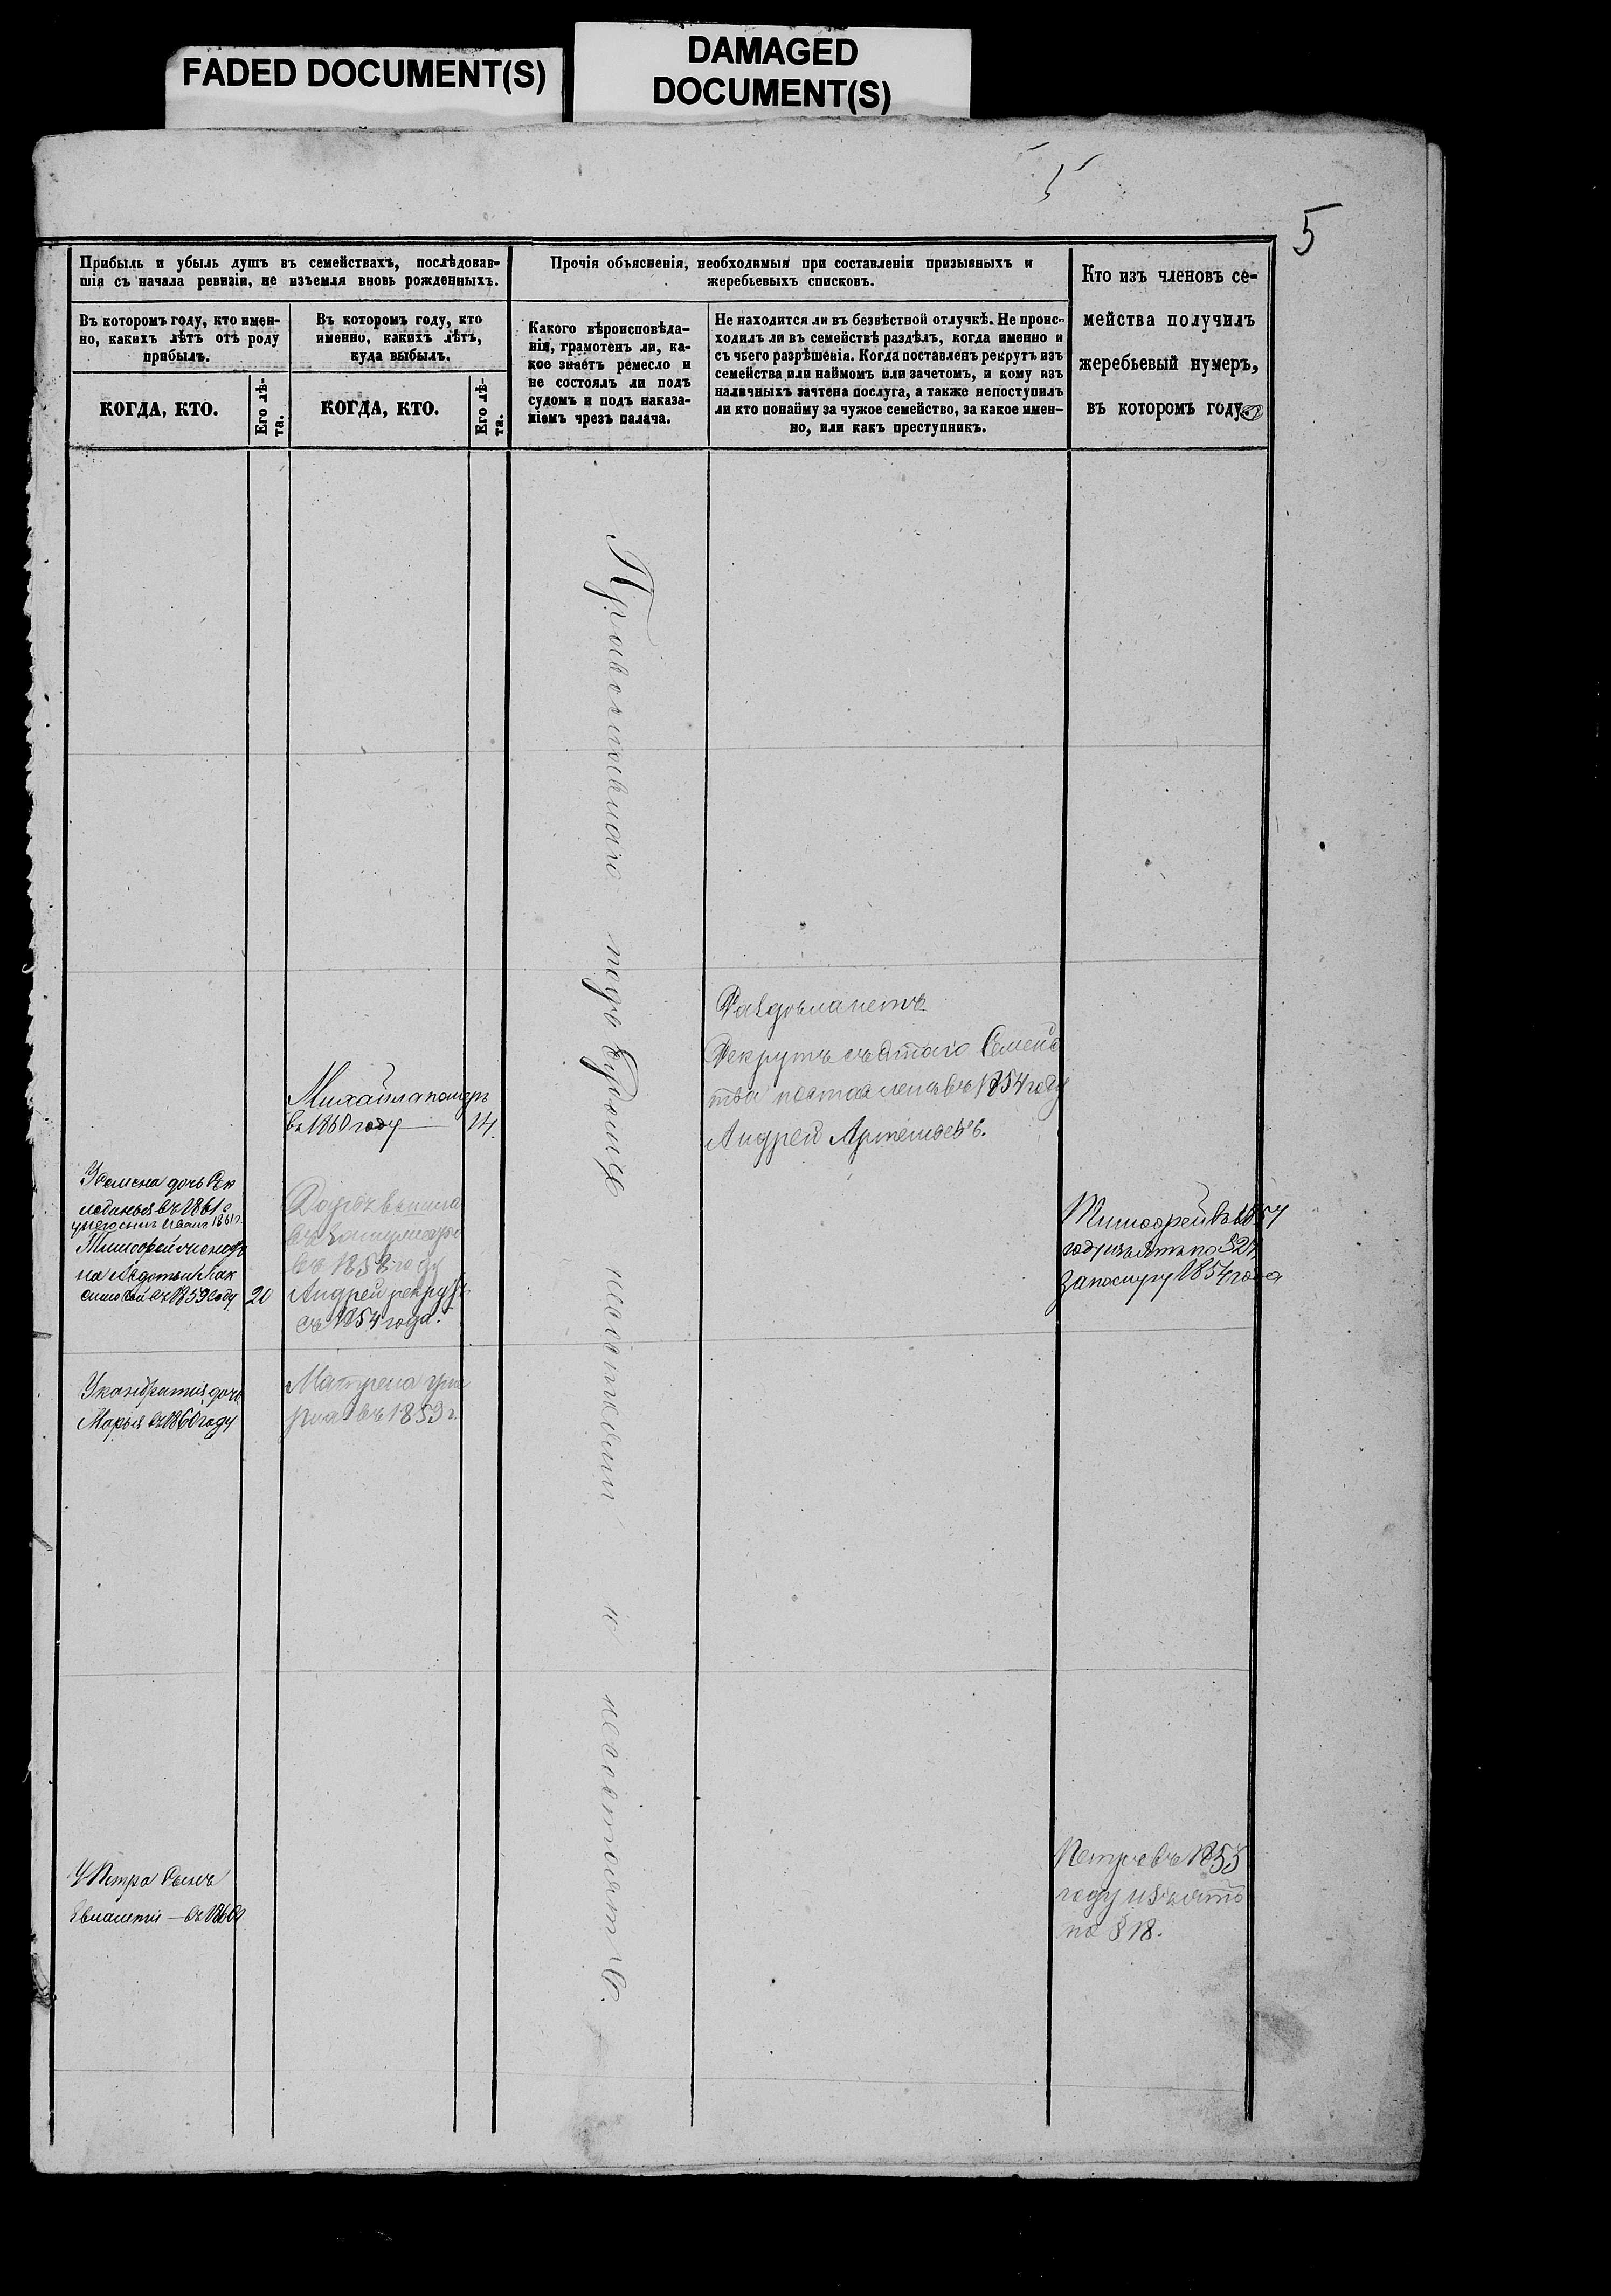 FADED DOCUMENT(S)
DAMAGED
DOCUMENT(S)
5
5
Прибыль и убыль душъ въ семействахъ, послѣдовав-
шія съ начала ревизіи, не изъемля вновь рожденныхъ.
Въ которомъ году, кто имен-
но, какихъ лѣтъ отъ роду
прибылъ.
КОГДА, КТО.
Его лѣ-
та.
Въ которомъ году, кто
именно, какихъ лѣтъ,
куда выбылъ.
КОГДА, КТО.
Его лѣ-
та.
Прочія объясненія, необходимыя при составленіи призывныхъ и
жеребьевыхъ списковъ.
Какого вѣроисповѣда-
нія, грамотенъ ли, ка-
кое знаетъ ремесло и
не состоялъ ли подъ
судомъ и подъ наказа-
ніемъ чрезъ палача.
Не находится ли въ безвѣстной отлучкѣ. Не проис-
ходилъ ли въ семействѣ раздѣлъ, когда именно и
съ чьего разрѣшенія. Когда поставленъ рекрутъ изъ
семейства или наймомъ или зачетомъ, и кому изъ
наличныхъ зачтена послуга, а также непоступилъ
ли кто понайму за чужое семейство, за какое имен-
но, или какъ преступникъ.
Кто изъ членовъ се-
мейства получилъ
жеребьевый нумеръ,
въ которомъ году.
Православнаго подъ Судомъ несостояли и несостоятъ.
Раздѣла нетъ
Рекрутъ съ этаго Семейс
тва поставленъ въ 1854 году
Андрей Артемьевъ.
Михайла померъ
въ 1860 году — 14.
У Семена дочь Фек
въ 1861 г
у него сынъ Иванъ 1861 г.
Тимофей женатъ
на Авдотьи Мак
симовой въ 1859 году 20
вышла
въ замужество
въ 1858 году
Андрей рекрутъ
съ 1854 года.
Тимофей въ 1854
году изъятъ по §
за послугу 1854 года
У Кондратія дочь
Марья въ 1860 году
Матрена уме
рла въ 1859 г.
У Петра Сынъ
въ 1860
Петръ въ 1855
году изъятъ
по § 18.